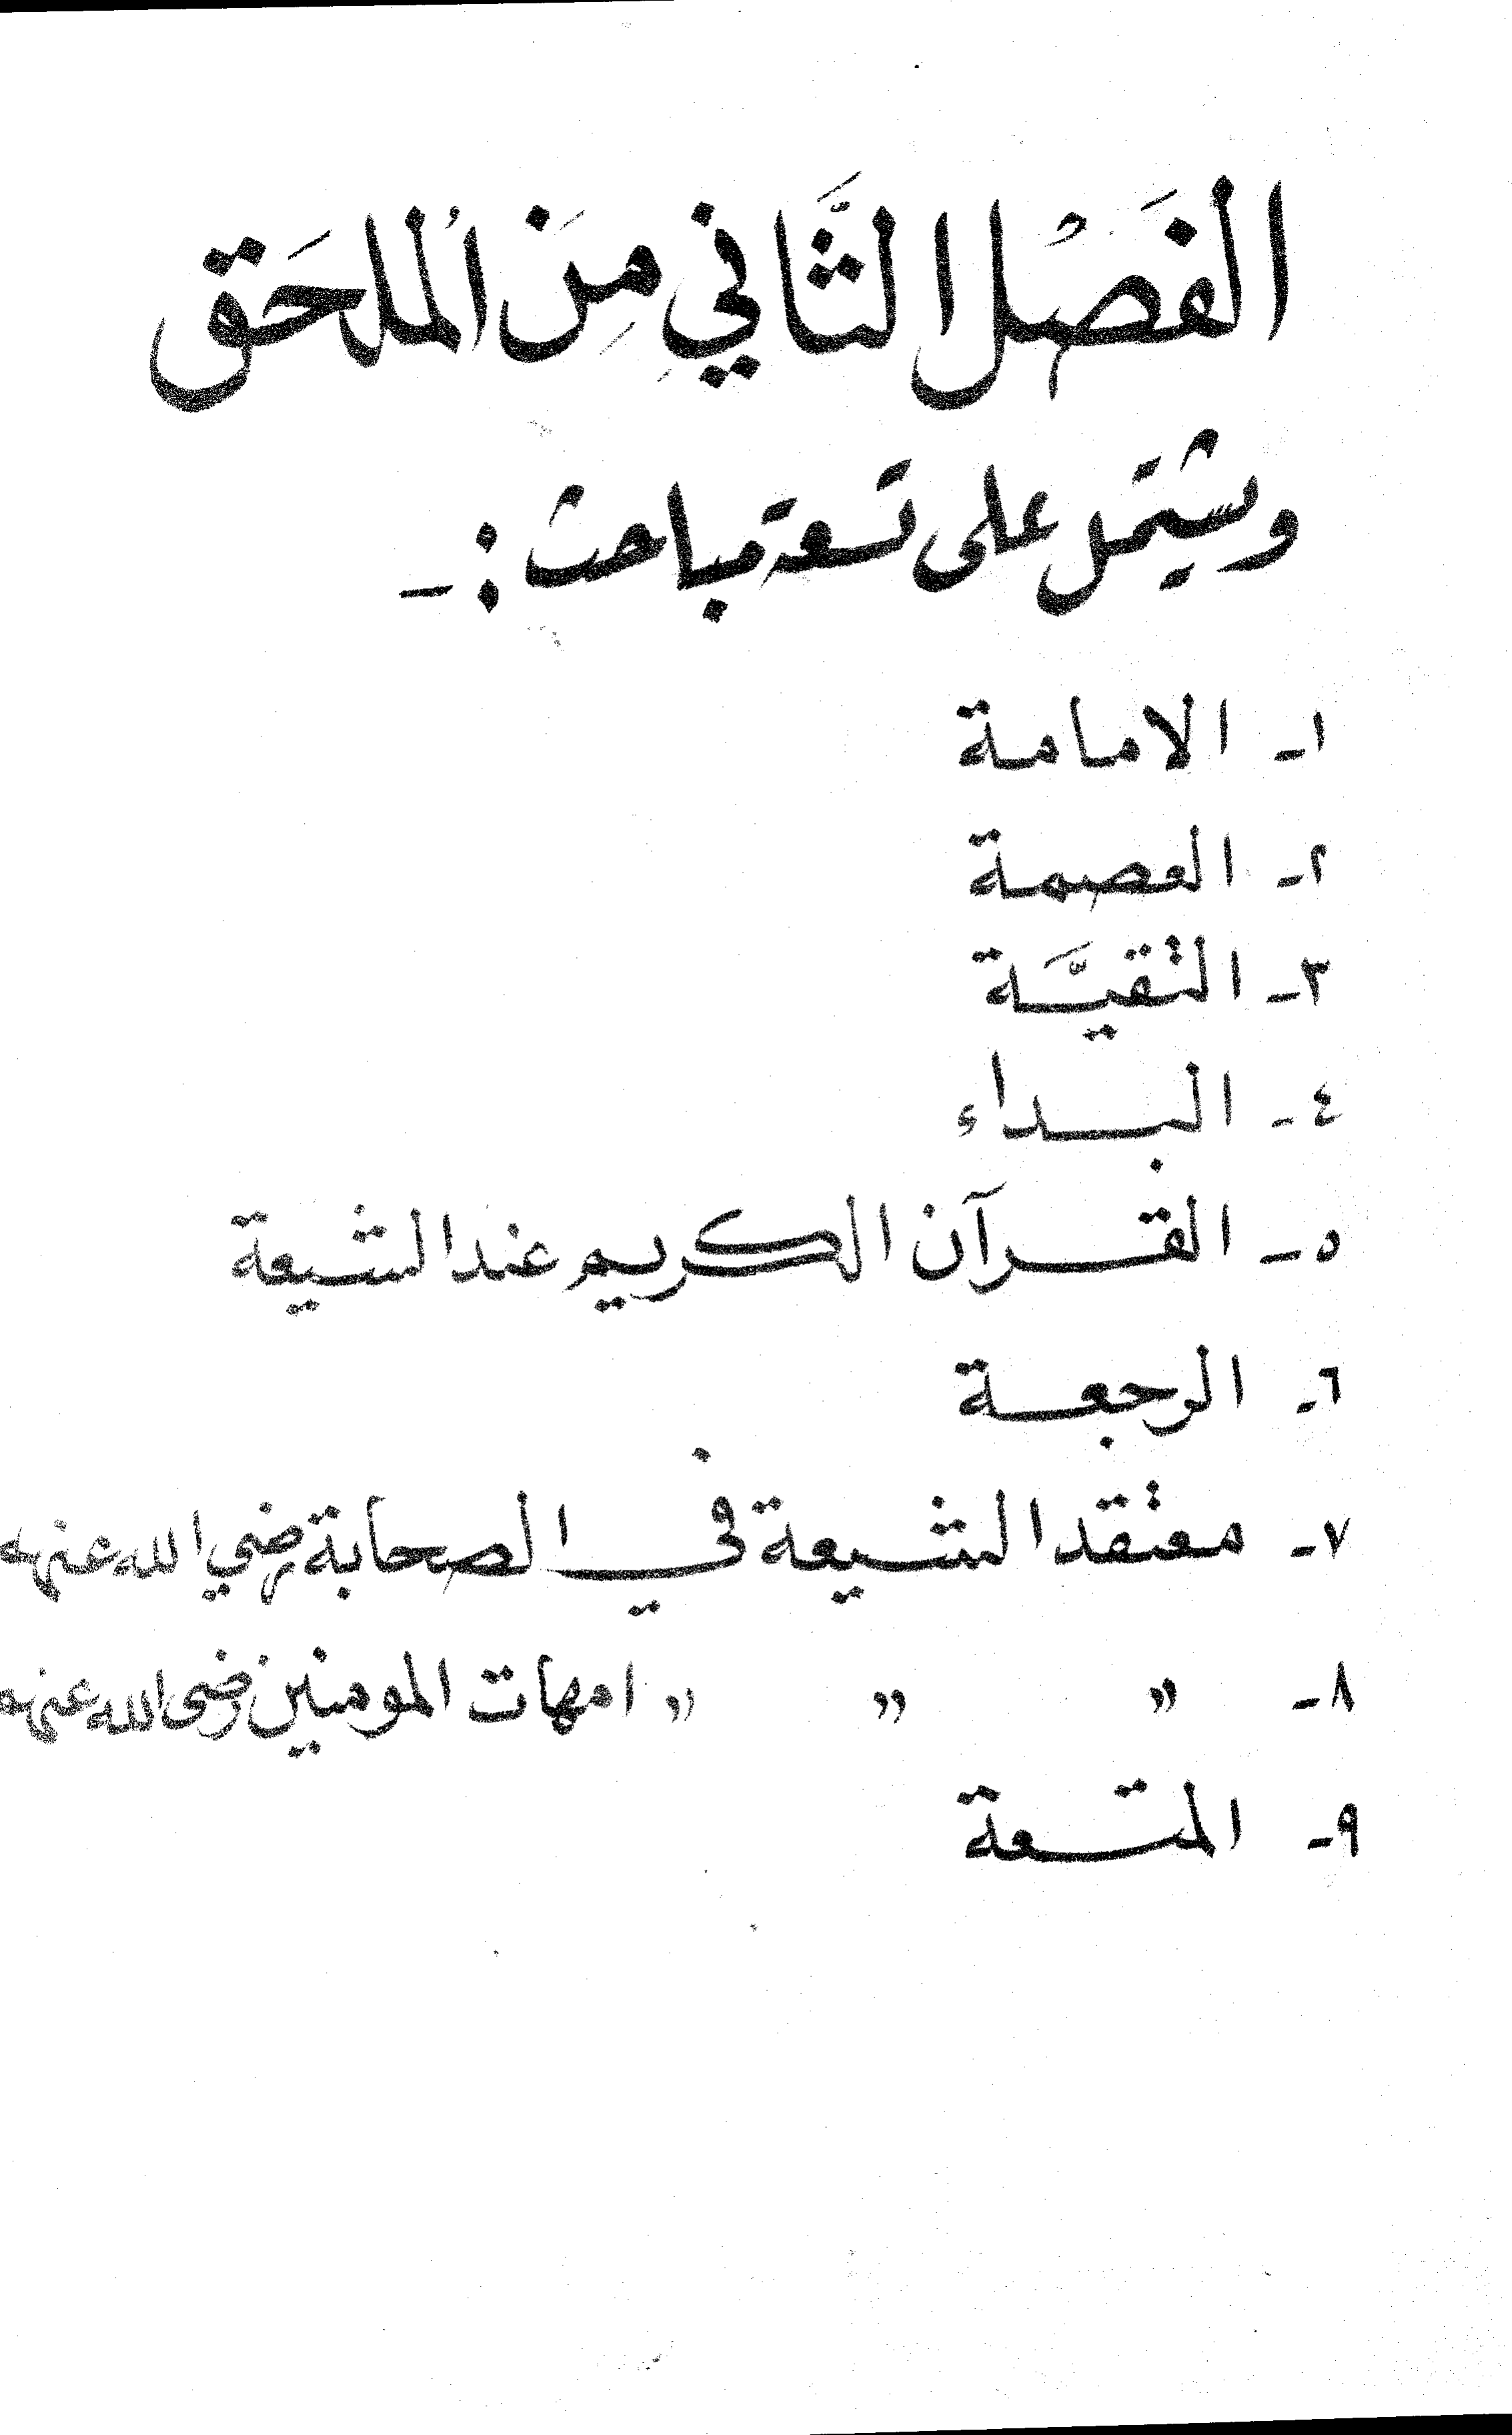 الفَصْل الثَّاني مِنَ المُلحَق
ويشتمل على تسعة مباحث :ـ
١ـ الامامة
٢ـ العصمة
٣ـ التقيَّة
٤ـ البداء
٥ـ القرآن الكريم عند الشيعة
٦ـ الرجعة
٧ـ معتقد الشيعة في الصحابة رضي الله عنهم
٨ـ " " " امهات المومنين رضى الله عنهم
٩ـ المتعة